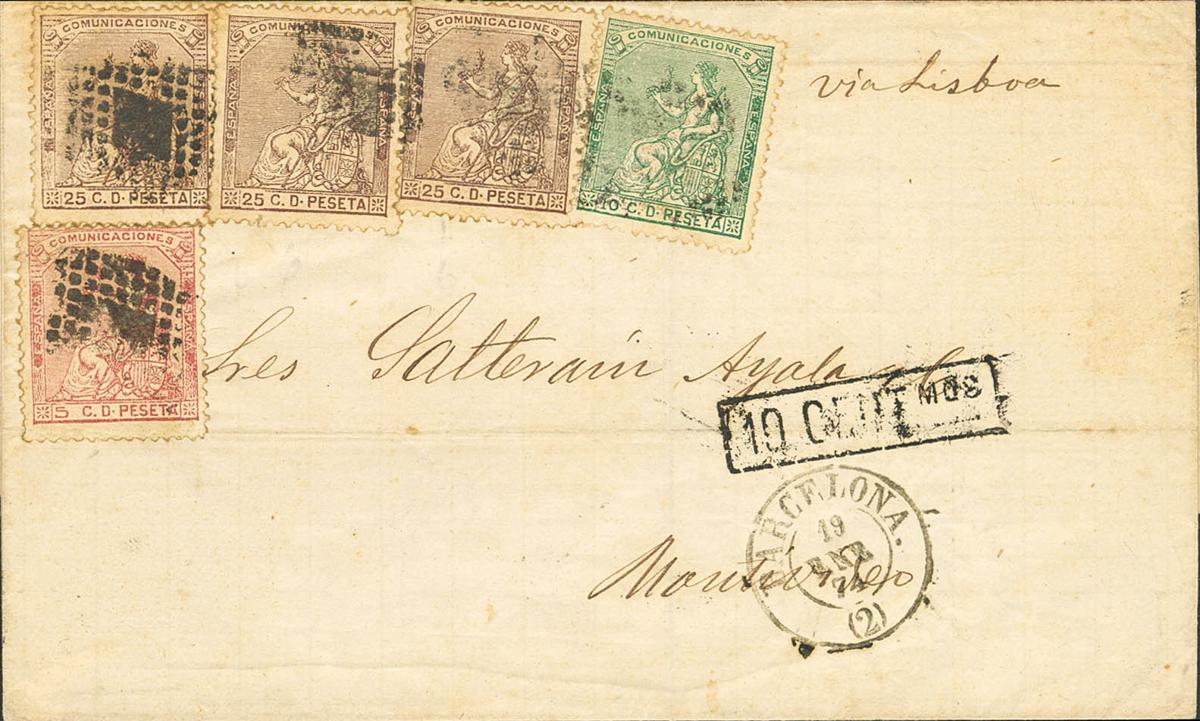 COMUNICACIONES
ESPAÑA
25 C. D. PESETA
COMUNICACIONES
ESPAÑA ESPAÑA
25 C. D. PESETA
COMUNICACIONES
ESPAÑA ESPAÑA
25 C. D. PESETA
COMUNICACIONES
ESPAÑA ESPAÑA
10 C. D. PESETA
via Lisboa
COMUNICACIONES
ESPAÑA ESPAÑA
5 C. D. PESETA
Sres Satterain Ayala
10 CENTMOS
BARCELONA.
19
ENE
74
(2)
Montevideo